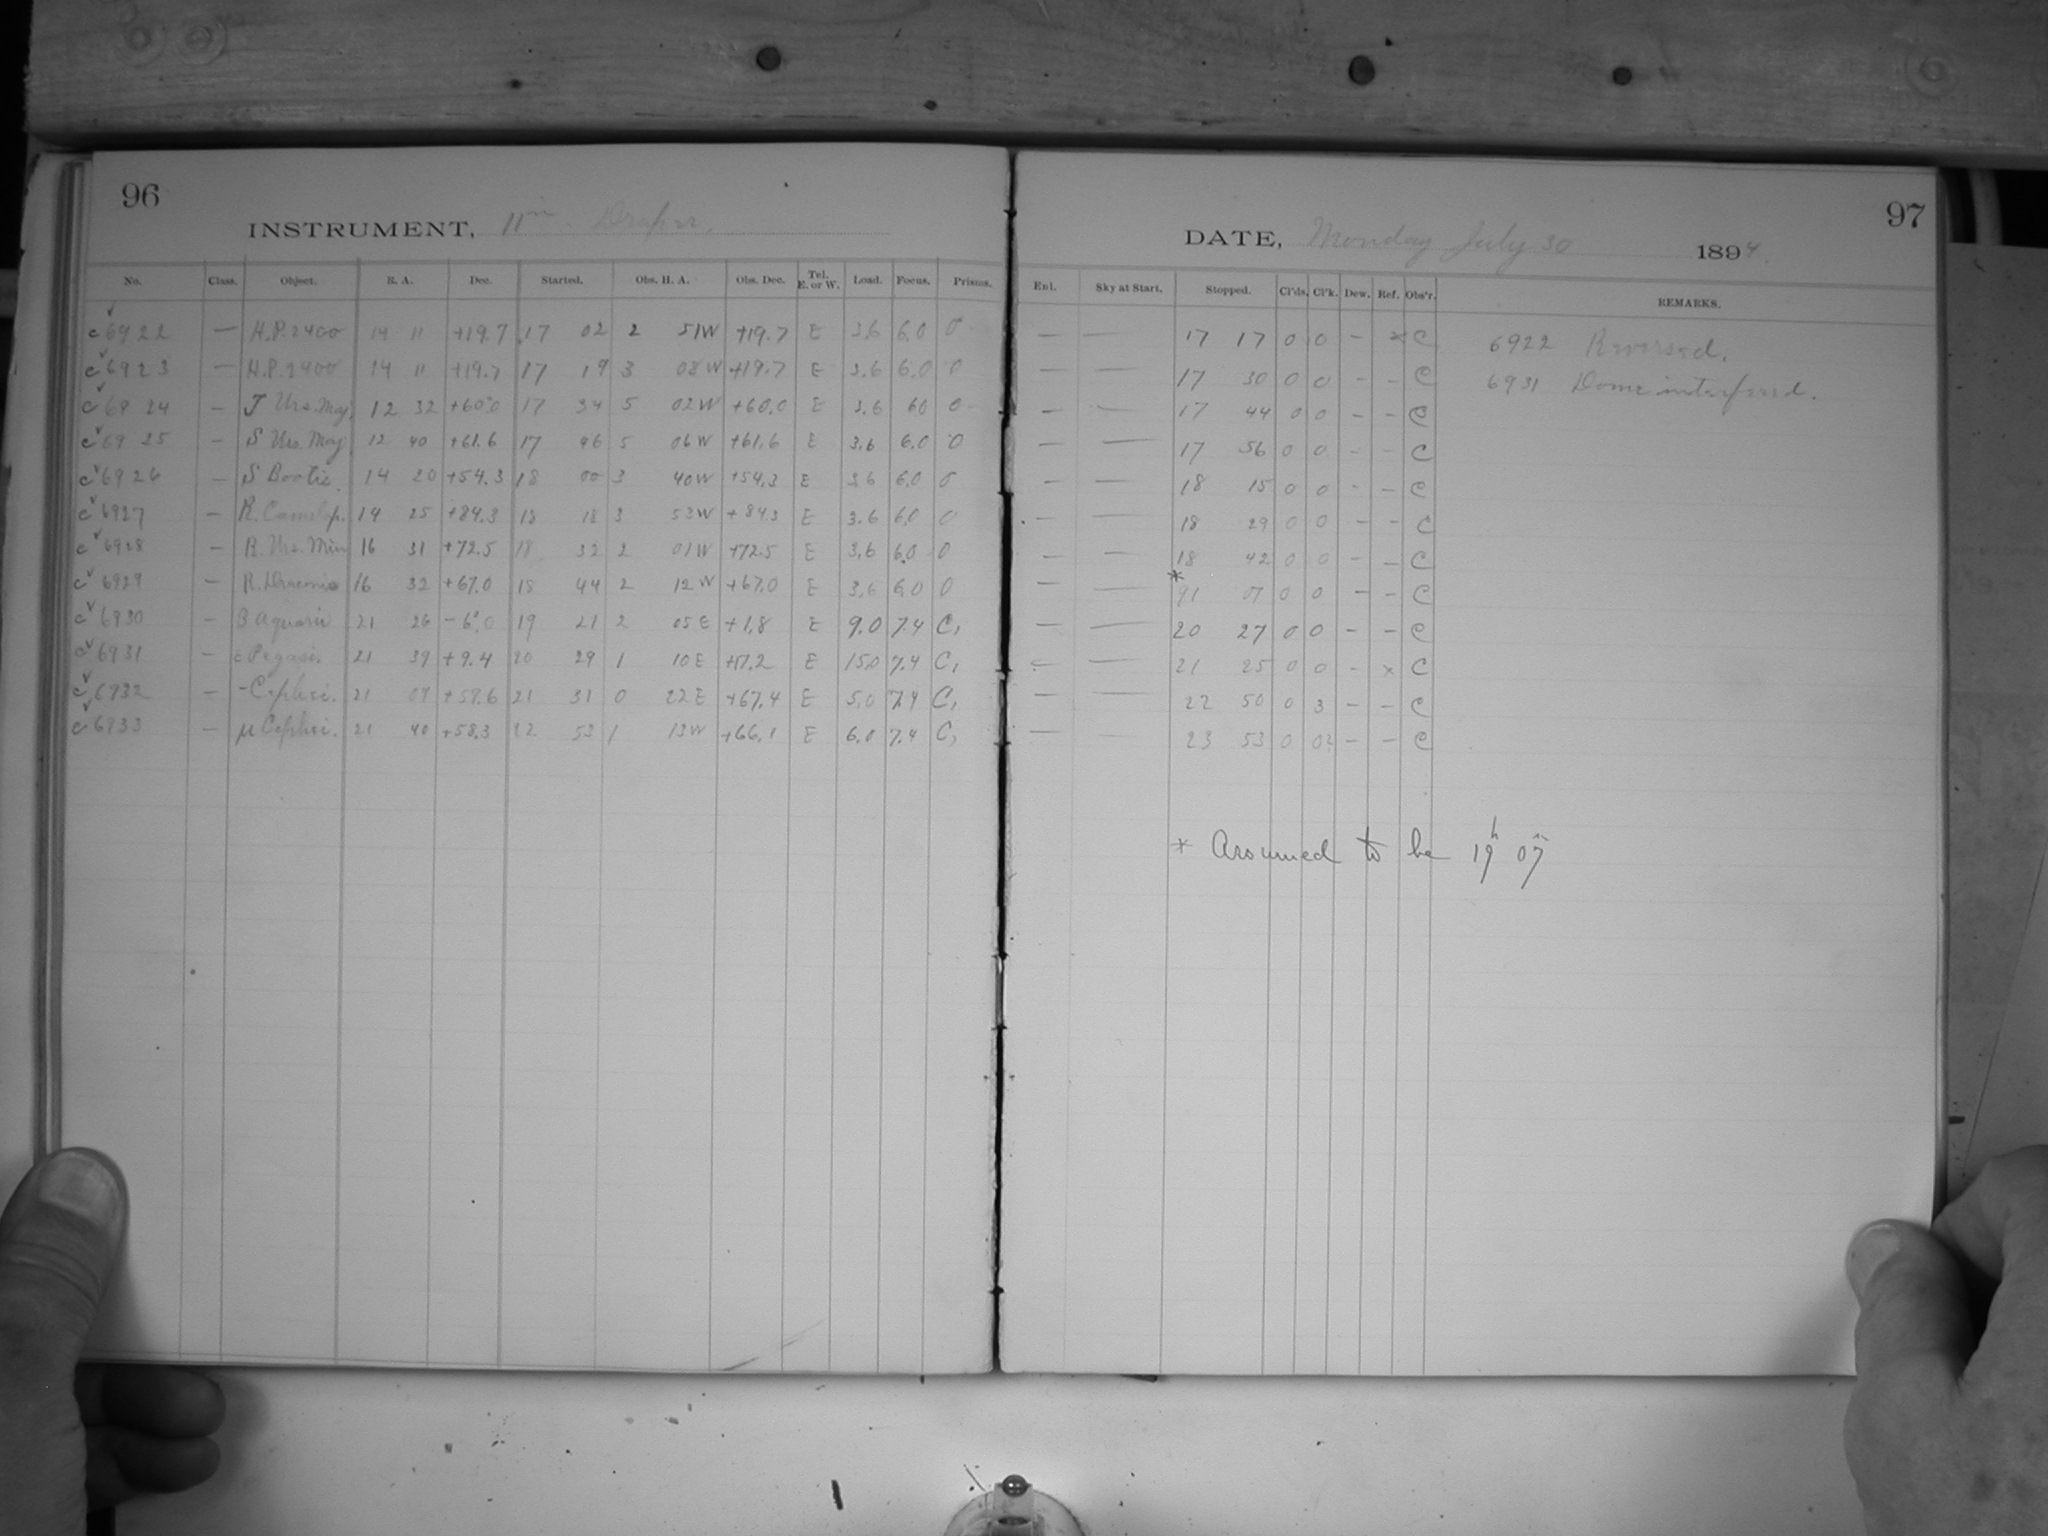 96
INSTRUMENT, 11in Draper.
No. Class. Object. R. A. Dec. Started. Obs. H. A. Obs. Dec. Tel. E. or W. Load. Focus. Prisms.
c 6922 — H.P. 2400 14 11 +19.7 17 02 2 51W +19.7 E 3.6 6.0 0
c 6923 — H.P. 2400 14 11 +19.7 17 19 3 08W +19.7 E 3.6 6.0 0
c 6924 — T Urs. Maj. 12 32 +60.0 17 34 5 02W +60.0 E 3.6 60 0
c 6925 — S Urs. Maj. 12 40 +61.6 17 46 5 06W +61.6 E 3.6 6.0 0
c 6926 — S Bootis. 14 20 +54.3 18 00 3 40W +54.3 E 3.6 6.0 0
c 6927 — R. Camelop. 14 25 +84.3 18 18 3 53W +84.3 E 3.6 6.0 0
c 6928 — R. Urs. Min 16 31 +72.5 18 32 2 01W +72.5 E 3.6 6.0 0
c 6929 — R. Draconis 16 32 +67.0 18 44 2 12W +67.0 E 3.6 6.0 0
c 6930 — β Aquarii 21 26 -6.0 19 21 2 05E +1.8 E 9.0 7.4 C,
c 6931 — ε Pegasi. 21 39 +9.4 20 29 1 10E +17.2 E 15.0 7.4 C,
c 6932 — - Cephei. 21 09 +59.6 21 31 0 22E +67.4 E 5.0 7.4 C,
c 6933 — μ Cephei. 21 40 +58.3 22 53 1 13W +66.1 E 6.0 7.4 C,
97
DATE, Monday July 30 1894.
Enl. Sky at Start. Stopped. Cl'ds. Cl'k. Dew. Ref. Obs'r. REMARKS.
— — 17 17 0 0 - × C 6922 Reversed.
— — 17 30 0 0 - - C 6931 Dome interfered.
— — 17 44 0 0 - - C
— — 17 56 0 0 - - C
— — 18 15 0 0 - - C
— — 18 29 0 0 - - C
— — 18 42 0 0 - - C
— — * 91 07 0 0 - - C
— — 20 27 0 0 - - C
— — 21 25 0 0 - × C
— — 22 50 0 3 - - C
— — 23 53 0 0? - - C
* Assumed to be 19h 07m